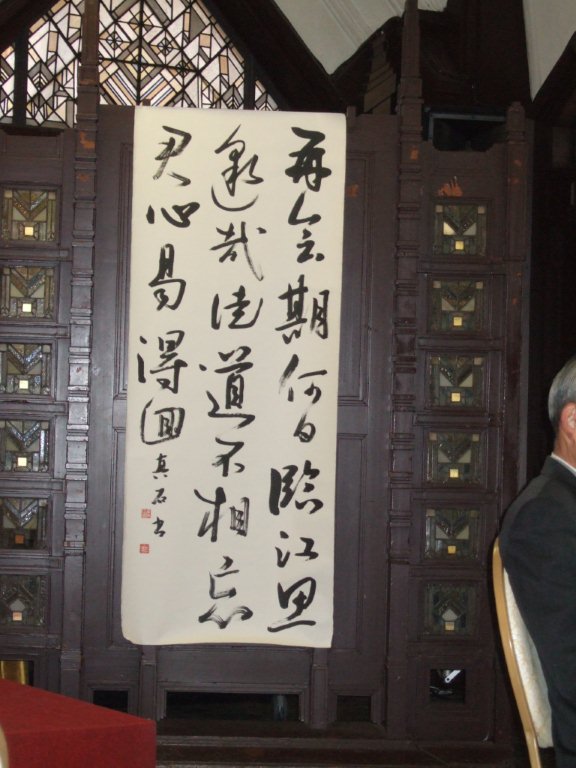 再会期何日臨江思
邈哉徒道不相忘
君心易得回
真石書